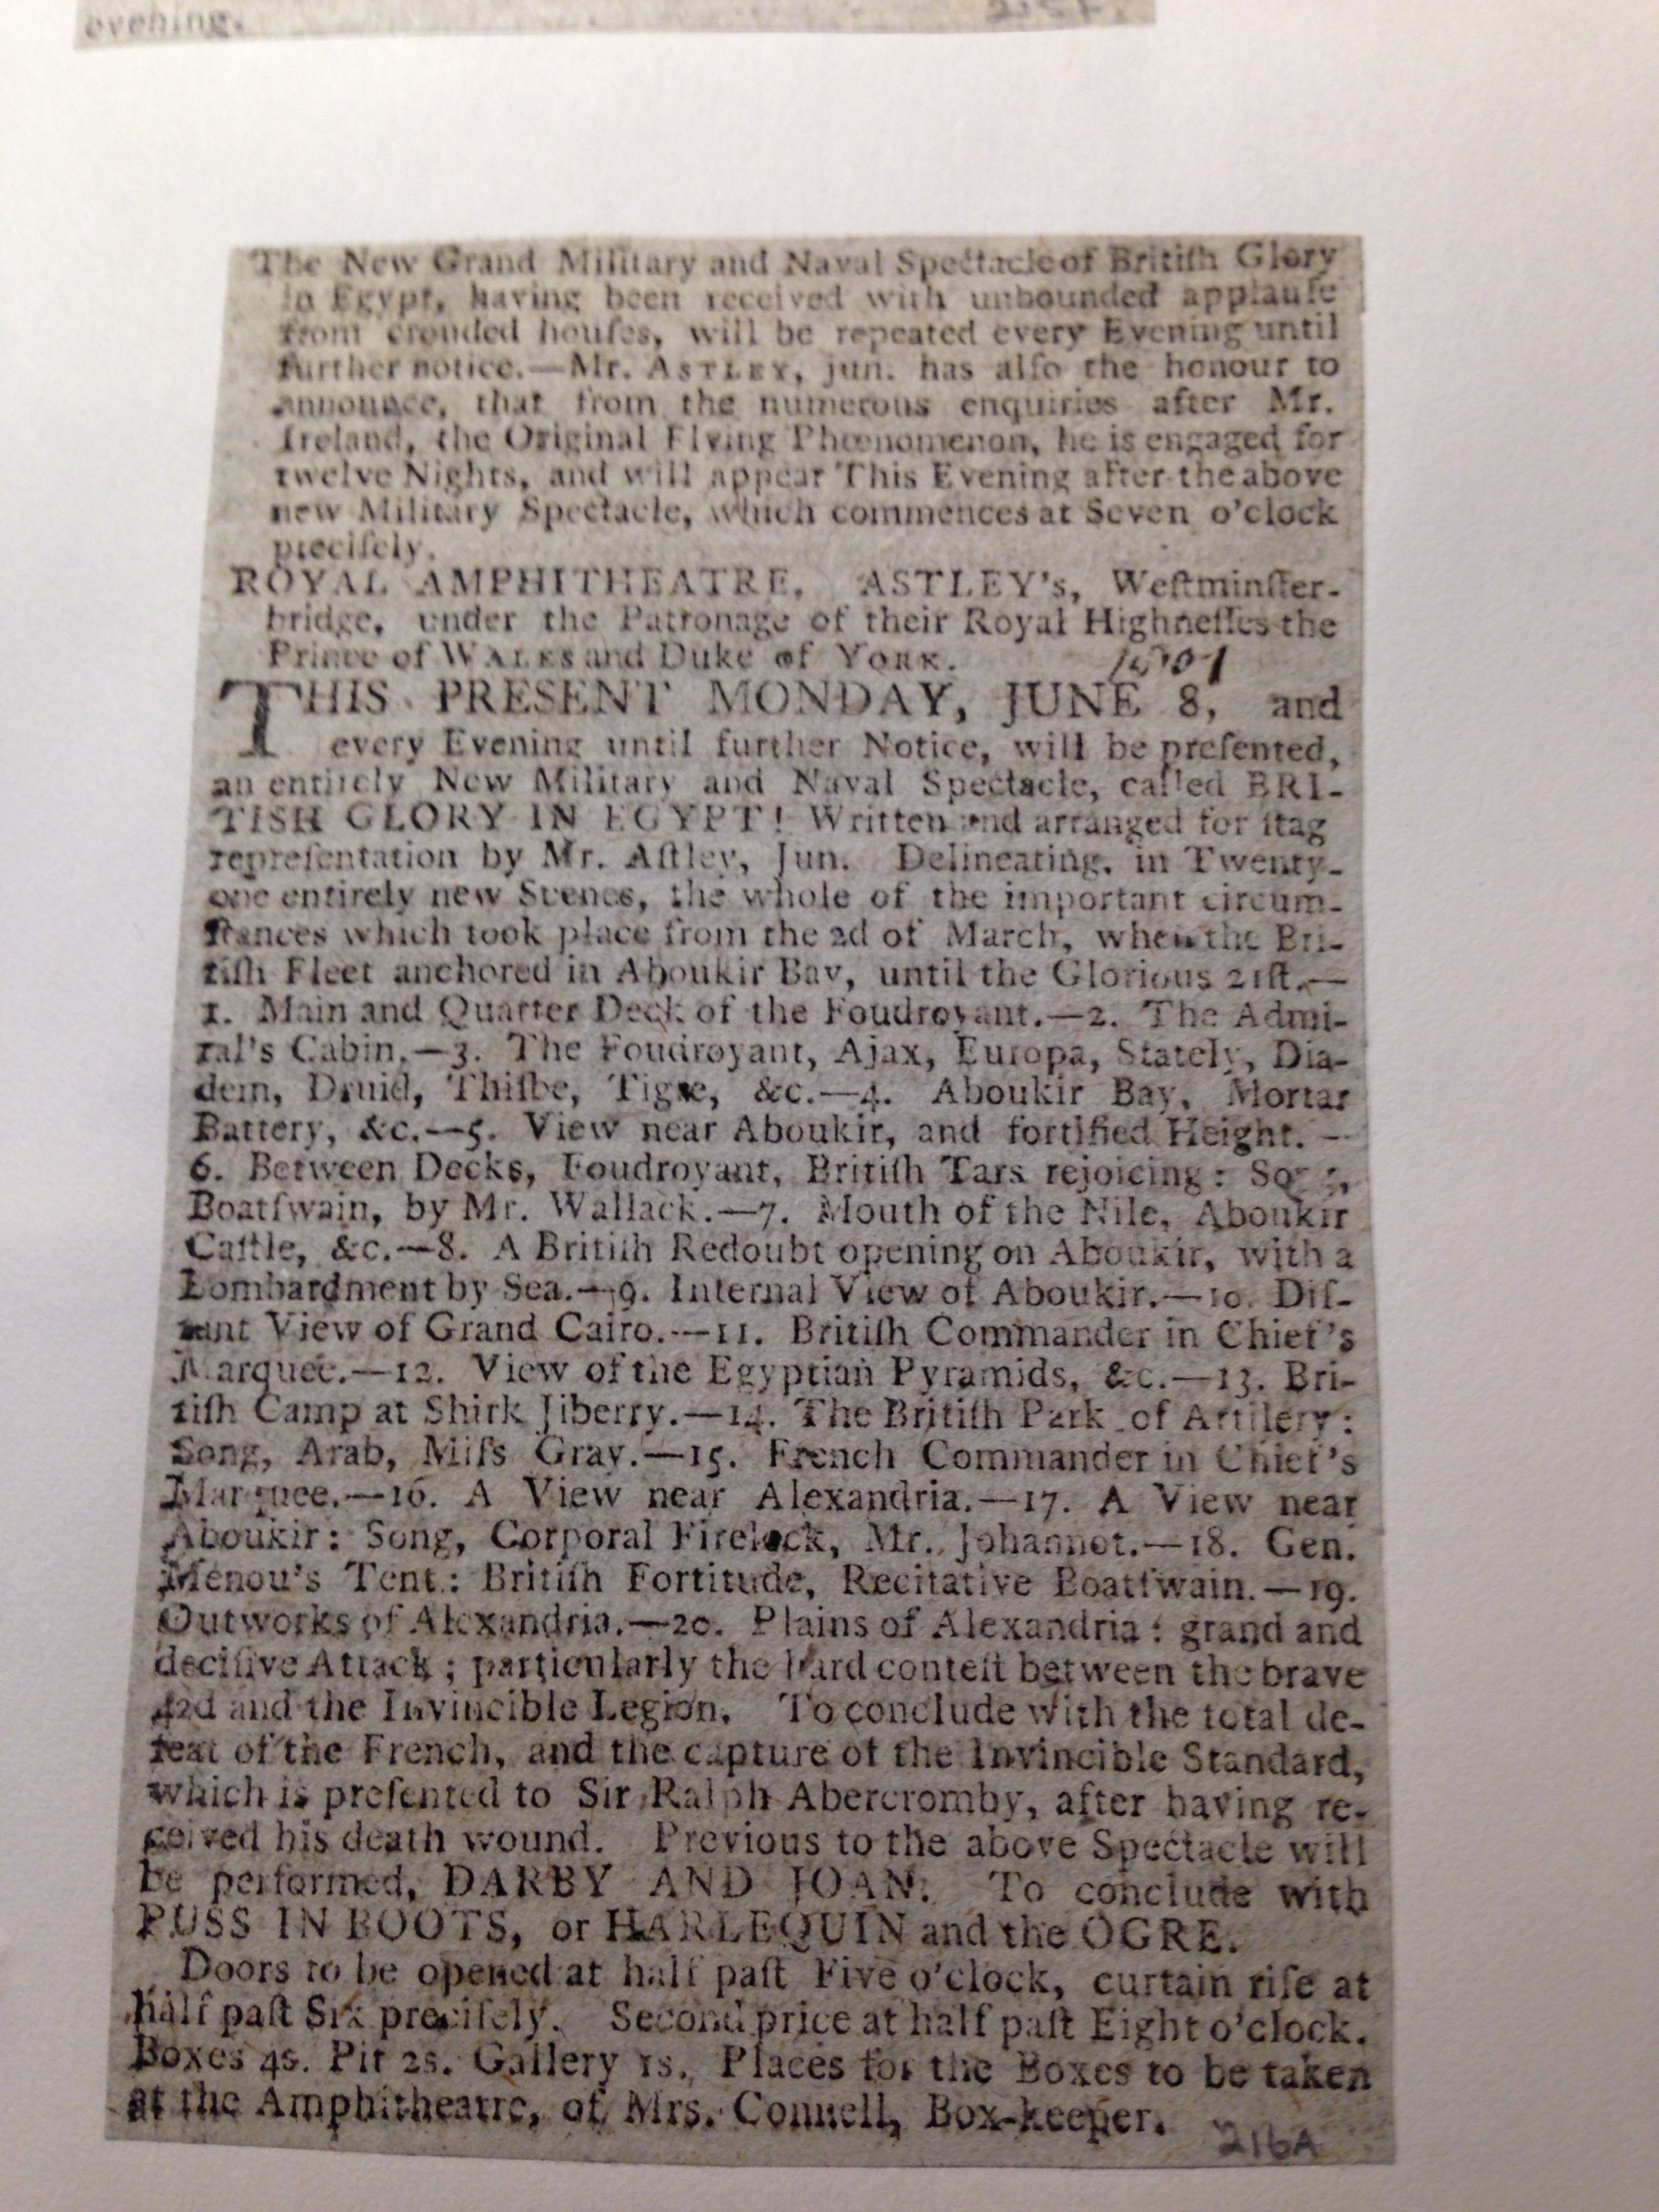 evening.
The New Grand Military and Naval Spectacle of Britiſh Glory
in Egypt, having been received with unbounded applauſe
from crouded houſes, will be repeated every Evening until
further notice.—Mr. ASTLEY, jun. has alſo the honour to
announce, that from the numerous enquiries after Mr.
Ireland, the Original Flying Phœnomenon, he is engaged for
twelve Nights, and will appear This Evening after the above
new Military Spectacle, which commences at Seven o'clock
preciſely.
ROYAL AMPHITHEATRE, ASTLEY's, Weſtminſter-
bridge, under the Patronage of their Royal Highneſſes the
Prince of WALES and Duke of YORK. 1801
THIS PRESENT MONDAY, JUNE 8, and
every Evening until further Notice, will be preſented,
an entirely New Military and Naval Spectacle, called BRI-
TISH GLORY IN EGYPT! Written and arranged for ſtag
repreſentation by Mr. Aſtley, Jun. Delineating, in Twenty-
one entirely new Scenes, the whole of the important circum-
ſtances which took place from the 2d of March, when the Bri-
tiſh Fleet anchored in Aboukir Bay, until the Glorious 21ſt.—
1. Main and Quarter Deck of the Foudroyant.—2. The Admi-
ral's Cabin.—3. The Foudroyant, Ajax, Europa, Stately, Dia-
dem, Druid, Thiſbe, Tigre, &c.—4. Aboukir Bay, Mortar
Battery, &c.—5. View near Aboukir, and fortified Height.—
6. Between Decks, Foudroyant, Britiſh Tars rejoicing: Song,
Boatſwain, by Mr. Wallack.—7. Mouth of the Nile, Aboukir
Caſtle, &c.—8. A Britiſh Redoubt opening on Aboukir, with a
Bombardment by Sea.—9. Internal View of Aboukir.—10. Diſ-
tant View of Grand Cairo.—11. Britiſh Commander in Chief's
Marquee.—12. View of the Egyptian Pyramids, &c.—13. Bri-
tiſh Camp at Shirk Jiberry.—14. The Britiſh Park of Artilery:
Song, Arab, Miſs Gray.—15. French Commander in Chief's
Marquee.—16. A View near Alexandria.—17. A View near
Aboukir: Song, Corporal Firelock, Mr. Johannot.—18. Gen.
Menou's Tent: Britiſh Fortitude, Recitative Boatſwain.—19.
Outworks of Alexandria.—20. Plains of Alexandria: grand and
deciſive Attack; particularly the hard conteſt between the brave
42d and the Invincible Legion. To conclude with the total de-
feat of the French, and the capture of the Invincible Standard,
which is preſented to Sir Ralph Abercromby, after having re-
ceived his death wound. Previous to the above Spectacle will
be performed, DARBY AND JOAN. To conclude with
PUSS IN BOOTS, or HARLEQUIN and the OGRE.
Doors to be opened at half paſt Five o'clock, curtain riſe at
half paſt Six preciſely. Second price at half paſt Eight o'clock.
Boxes 4s. Pit 2s. Gallery 1s. Places for the Boxes to be taken
at the Amphitheatre, of Mrs. Connell, Box-keeper.
216A